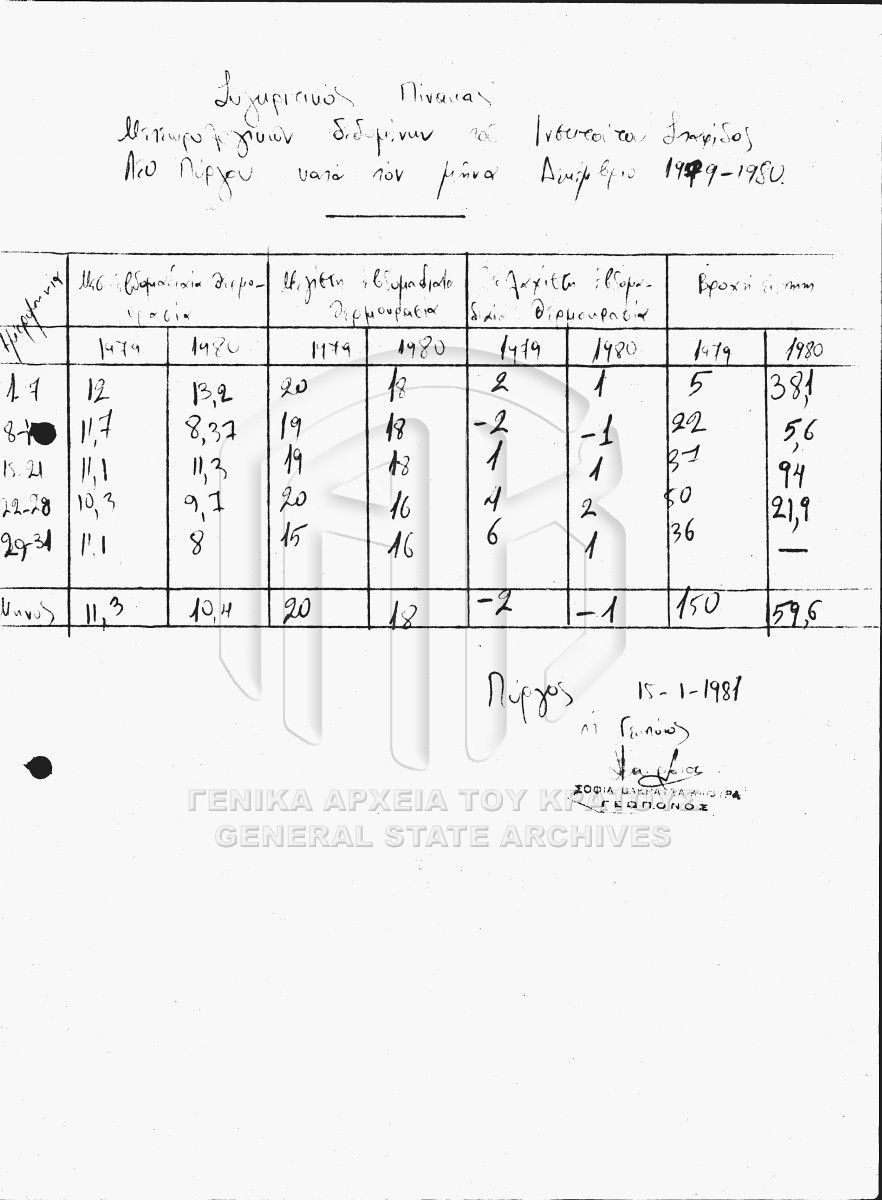 Συγκριτικός Πίνακας
Μετεωρολογικών δεδομένων τοῦ Ινστιτούτου Σταφίδος
Πύργου κατά τόν μήνα Δεκέμβριο 1979-1980.
Ημερομηνία Μέση εβδομαδιαία θερμο- Μεγίστη εβδομαδιαία Ελαχίστη εβδομα- Βροχή σε mm
κρασία θερμοκρασία διαία θερμοκρασία
1979 1980 1979 1980 1979 1980 1979 1980
1-7 12 13,2 20 18 2 1 5 38,1
8- 11,7 8,37 19 18 -2 -1 22 5,6
15-21 11,1 11,3 19 18 1 1 37 94
22-28 10,3 9,7 20 16 4 2 50 21,9
29-31 11,1 8 15 16 6 1 36 —
Μηνός 11,3 10,4 20 18 -2 -1 150 59,6
Πύργος 15-1-1981
Γεωπόνος
ΣΟΦΙΑ
ΓΕΩΠΟΝΟΣ
ΓΕΝΙΚΑ ΑΡΧΕΙΑ ΤΟΥ ΚΡΑΤΟΥΣ
GENERAL STATE ARCHIVES